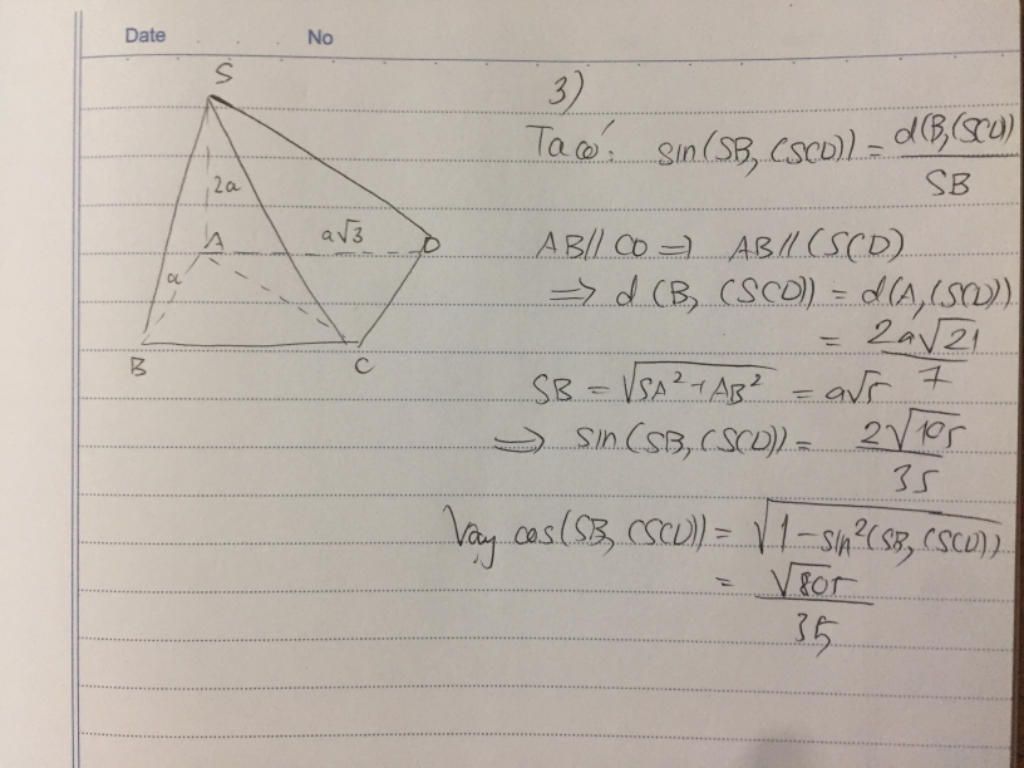 Date No
S
2a
A
a√3
D
a
B
C
3)
Ta có: sin(SB, (SCD)) = d(B, (SCD)) / SB
AB // CD => AB // (SCD)
=> d(B, (SCD)) = d(A, (SCD))
= 2a√21 / 7
SB = √(SA² + AB²) = a√5
=> sin(SB, (SCD)) = 2√105 / 35
Vậy cos(SB, (SCD)) = √(1 - sin²(SB, (SCD)))
= √805 / 35